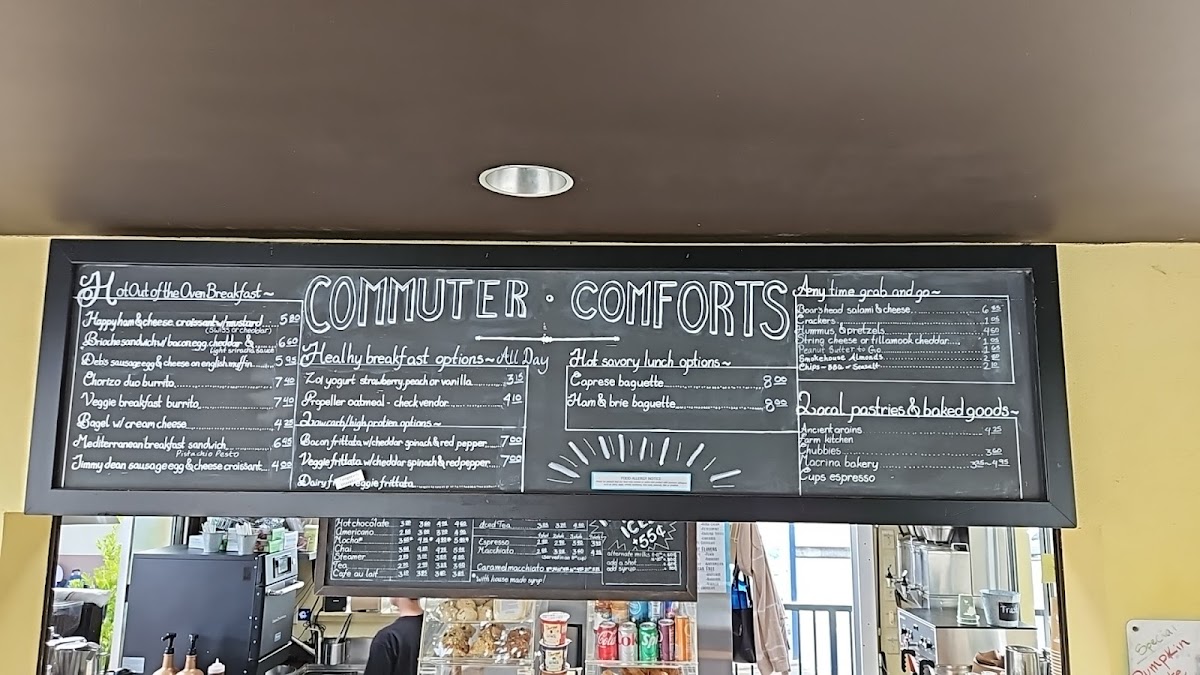 COMMUTER · COMFORTS
Hot Out of the Oven Breakfast~
Happy ham & cheese croissant w/ mustard 5.80
(Swiss or cheddar)
Brioche sandwich w/ bacon egg cheddar & 6.60
light sriracha sauce
Deb's sausage egg & cheese on english muffin 5.95
Chorizo duo burrito 7.40
Veggie breakfast burrito 7.40
Bagel w/ cream cheese 4.25
Mediterranean breakfast sandwich 6.95
Pistachio Pesto
Jimmy dean sausage egg & cheese croistant 4.00
Healhy breakfast options~ All Day
Zoi yogurt strawberry, peach or vanilla 3.15
Propeller oatmeal - check vendor 4.10
Low carb/high protien options~
Bacon frittata w/ cheddar spinach & red pepper 7.00
Veggie frittata w/ cheddar spinach & red pepper 7.00
Dairy veggie frittata
Hot savory lunch options~
Caprese baguette 8.00
Ham & brie baguette 8.00
FOOD ALLERGY NOTICE
Any time grab and go~
Boar's head salami & cheese
Crackers
Hummus & pretzels 4.60
String cheese or tillamook cheddar
Peanut Butter to Go
Smokehouse Almonds
Chips - BBQ or Seasalt
Local pastries & baked goods~
Ancient grains 4.25
Farm kitchen
Chubbies 3.60
Macrina bakery
Cups espresso
Hot chocolate
Americano
Mocha*
Chai
Steamer
Tea
Cafe au lait
Iced Tea
Espresso
Macchiato
Caramel macchiato
*with house made syrup!
ICED
55¢
alternate milks
add a shot
add syrup
Coke
Trash
Special
Pumpkin